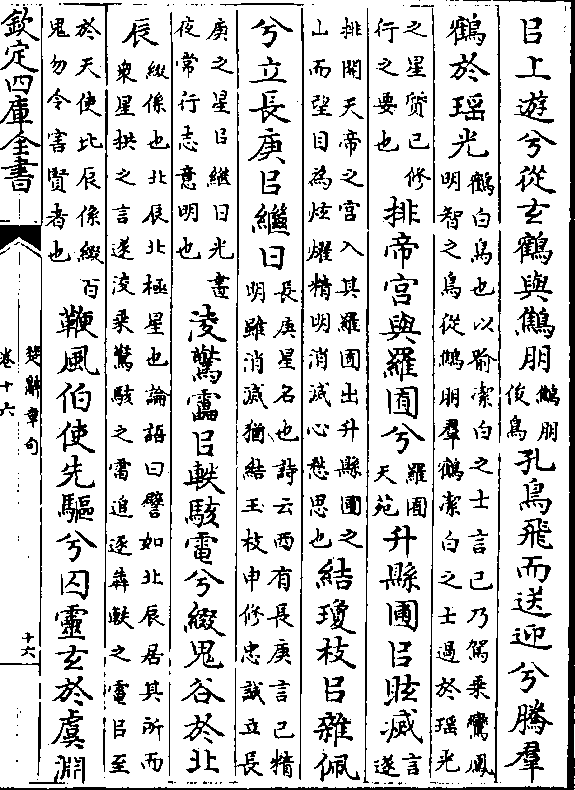 㠯上遊兮從玄鶴與鷦朋鷦朋俊鳥孔鳥飛而送迎兮騰羣
鶴於瑶光鶴白鳥也以喻潔白之士言己乃駕乗鸞鳳明智之鳥從鷦朋羣鶴潔白之士過於瑶光
之星質己修行之要也排帝宫與羅囿兮羅囿天苑升縣圃㠯眩滅言遂
排開天帝之宫入其羅囿出升縣圃之山而望目為炫燿精明消滅心愁思也結瓊枝㠯雜佩
兮立長庚㠯繼日長庚星名也詩云西有長庚言己精明雖消滅猶結玉枝申修忠誠立長
庚之星㠯繼日光晝夜常行志意明也淩驚靁㠯軼駭電兮綴鬼谷於北
辰綴係也北辰北極星也論語曰譬如北辰居其所而衆星拱之言遂淩乗驚駭之雷追逐犇軼之電㠯至
於天使北辰係綴百鬼勿令害賢者也鞭風伯使先驅兮囚靈玄於虞淵
欽定四庫全書
楚辭章句
卷十六
十六